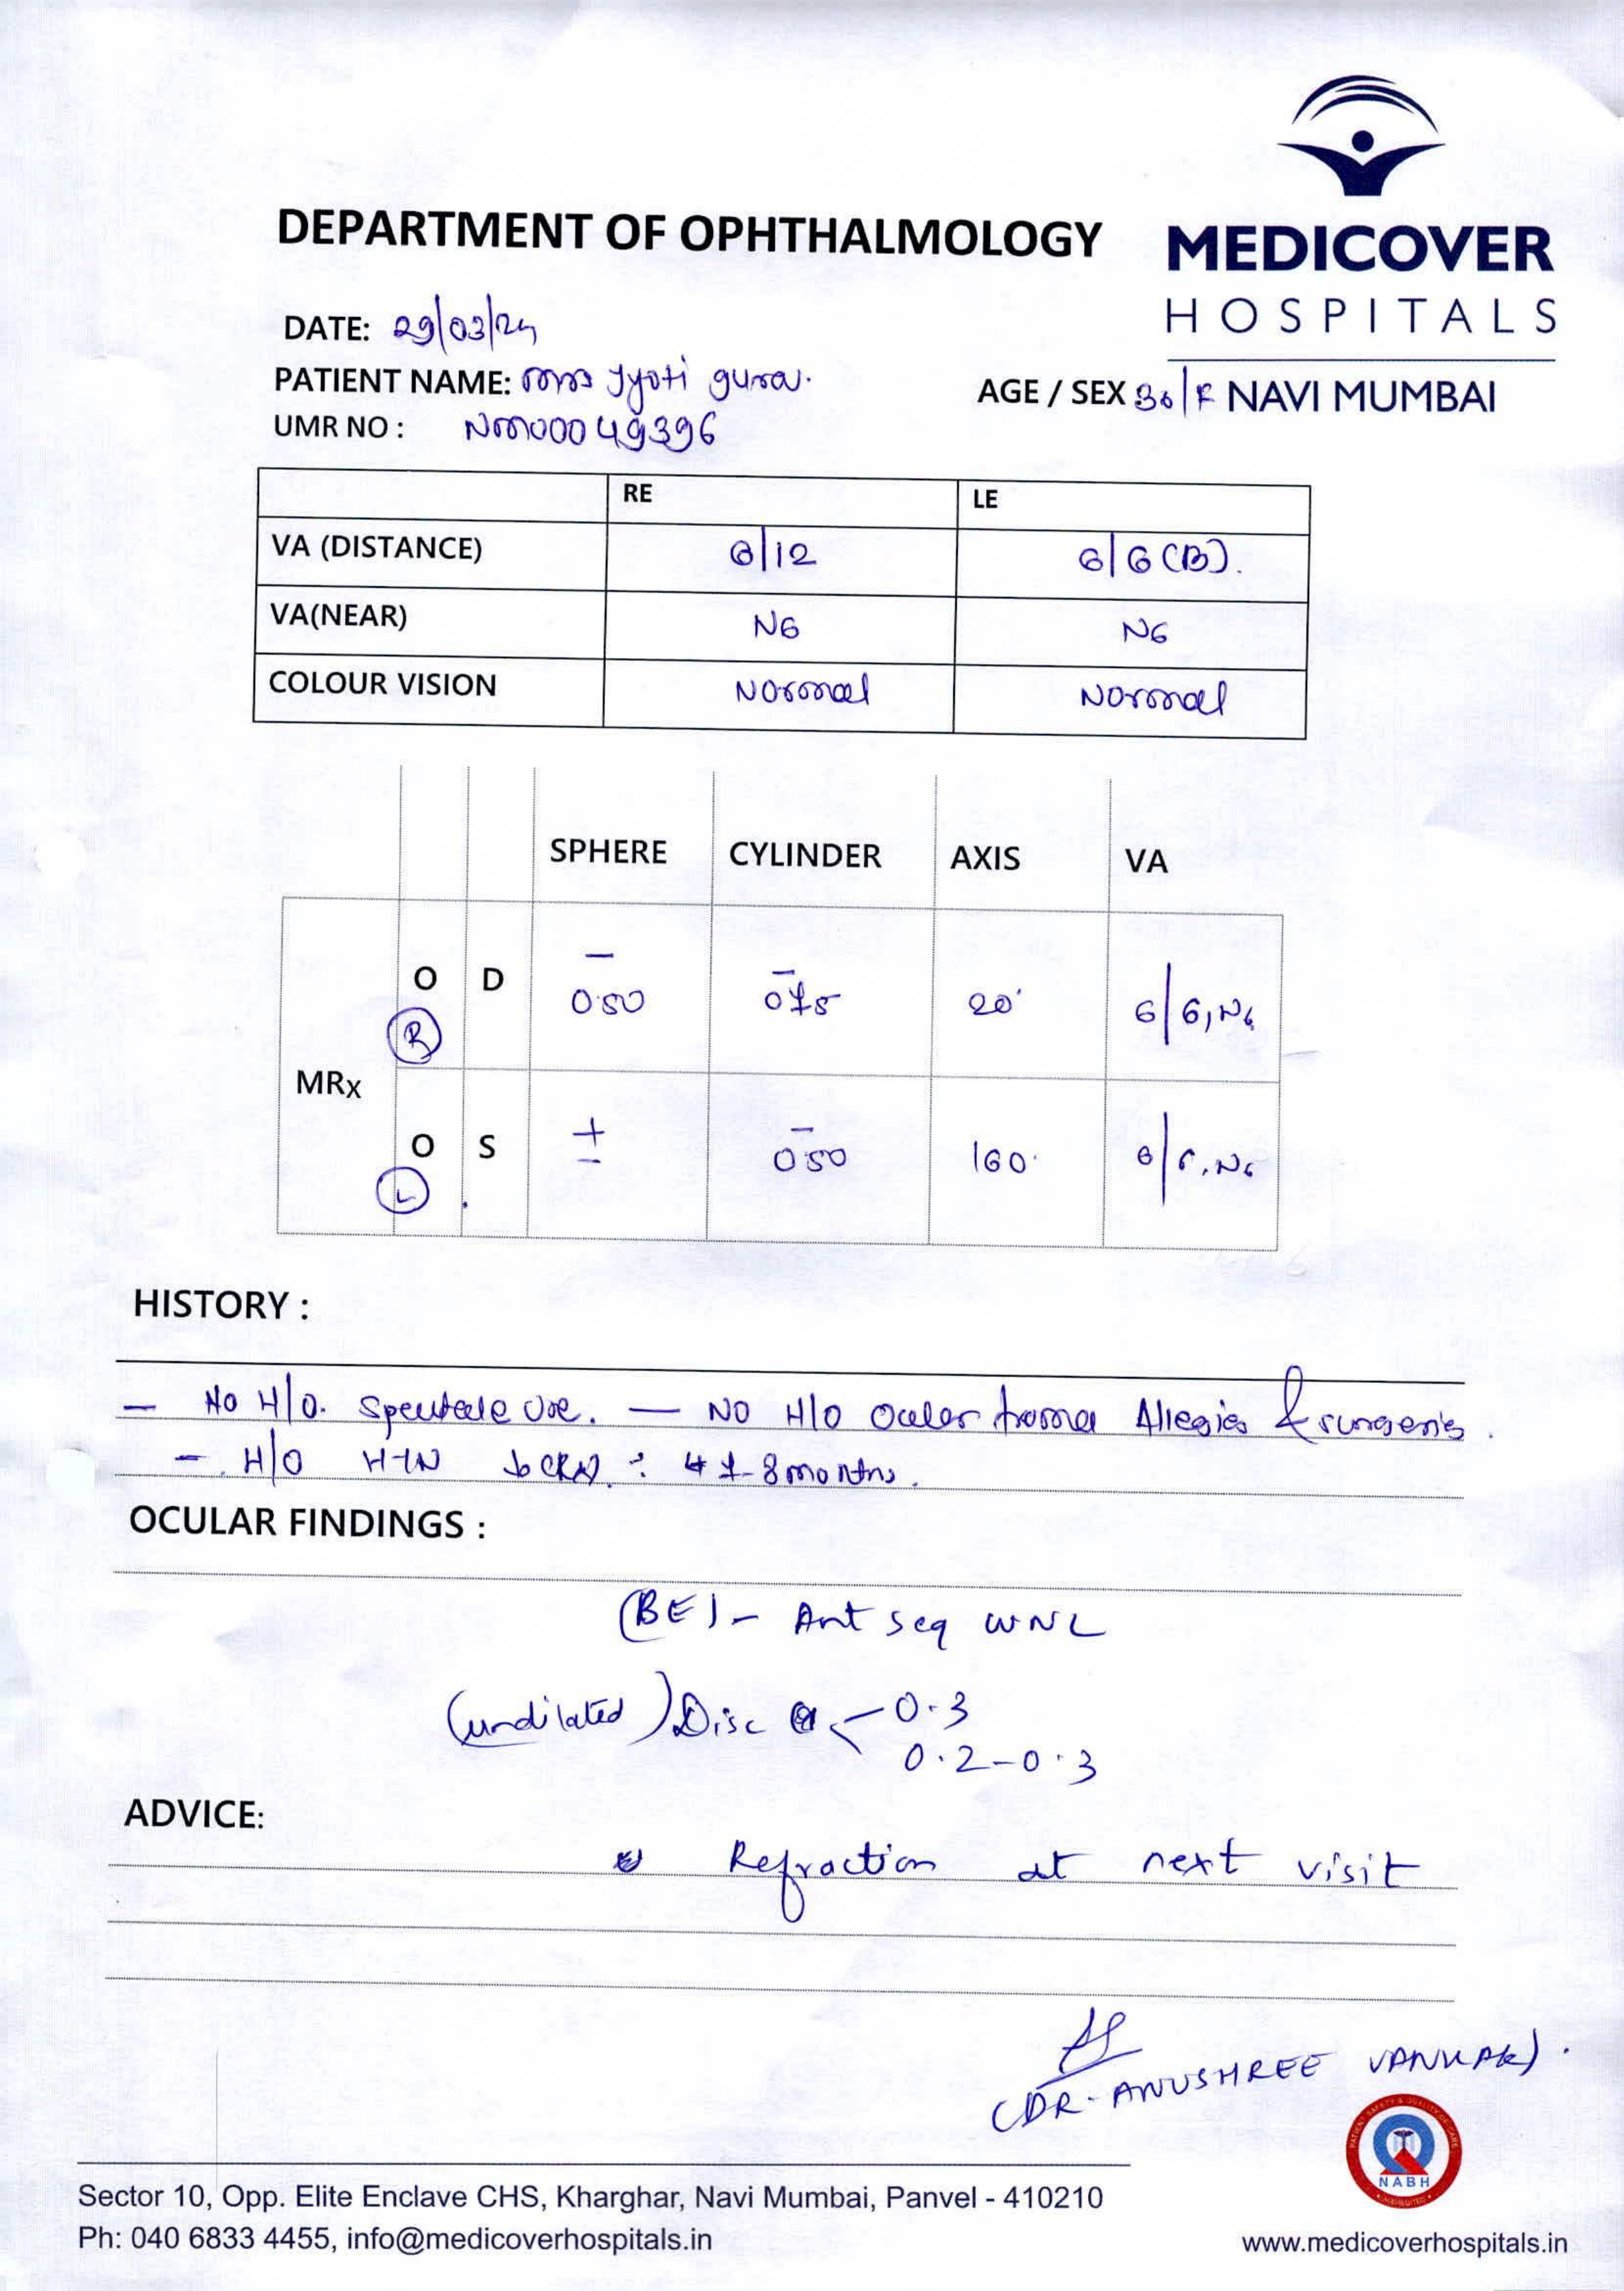 DEPARTMENT OF OPHTHALMOLOGY
MEDICOVER
HOSPITALS
NAVI MUMBAI
DATE: 29/03/24
PATIENT NAME: Mrs Jyoti gurav.
AGE / SEX 36/F
UMR NO : NM00049396
RE LE
VA (DISTANCE) 6/12 6/6 (B).
VA(NEAR) N6 N6
COLOUR VISION Normal Normal
SPHERE CYLINDER AXIS VA
O D – 0.50 – 0.75 20° 6/6, N6
R
MRx
O S ± – 0.50 160° 6/6, N6
L
HISTORY :
– No H/O. Spectacle use. – NO H/O Ocular Allegies & surgeries.
– H/O HTN : 8 months.
OCULAR FINDINGS :
(BE) – Ant seg WNL
(undilated) Disc 0.3
0.2-0.3
ADVICE:
Refraction at next visit
(DR. ANUSHREE VANKAR).
PATIENT SAFETY & QUALITY OF CARE
NABH
ACCREDITED
Sector 10, Opp. Elite Enclave CHS, Kharghar, Navi Mumbai, Panvel - 410210
Ph: 040 6833 4455, info@medicoverhospitals.in
www.medicoverhospitals.in